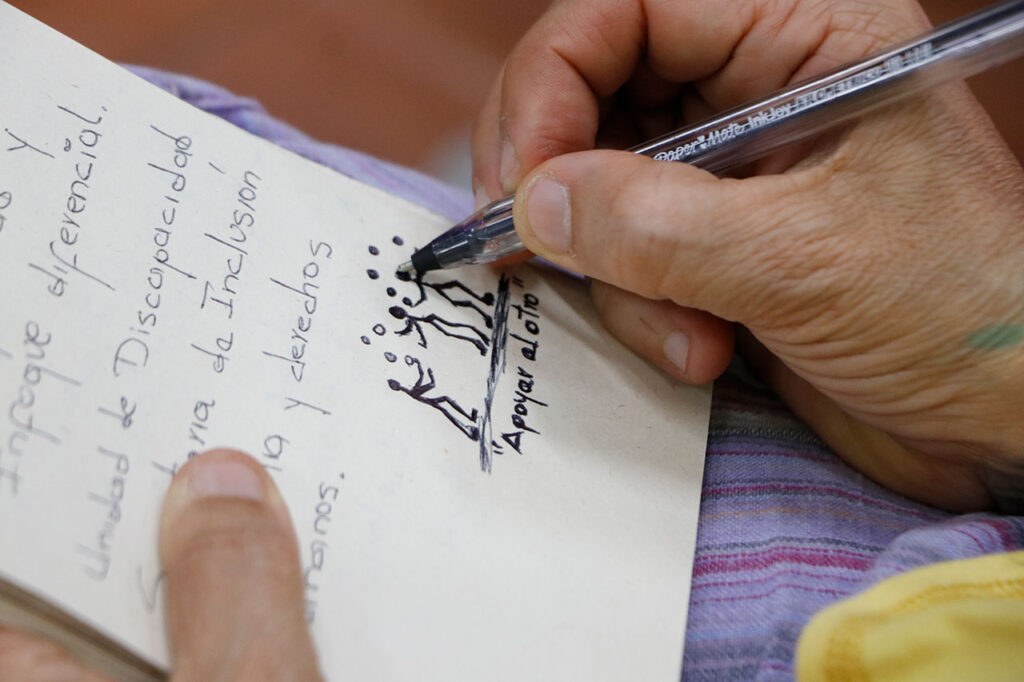 y
Infoque diferencial.
Unidad de Discapacidad
de Inclusión
y derechos
manos.
"Apoyar al otro"
Paper Mate InkJoy KILOMETRICO